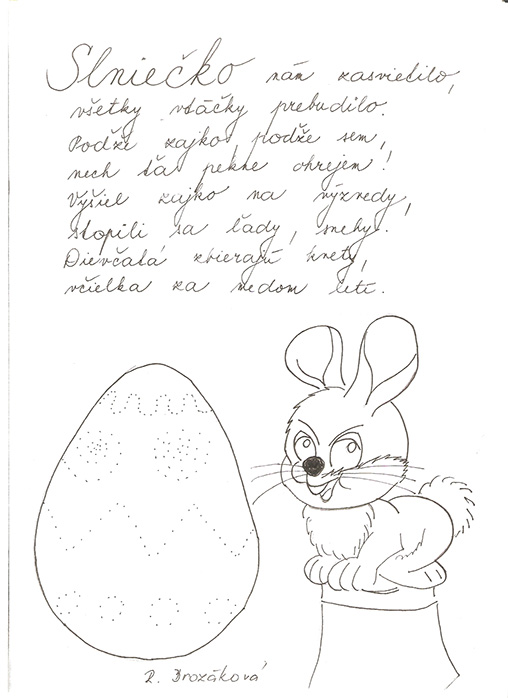 Slniečko nám zasvietilo,
všetky vtáčky prebudilo.
Podže zajko, podže sem,
nech ťa pekne ohrejem!
Vyšiel zajko na výzvedy,
stopili sa ľady, snehy.
Dievčatá zbierajú kvety,
včielka za medom letí.
R. Drozáková